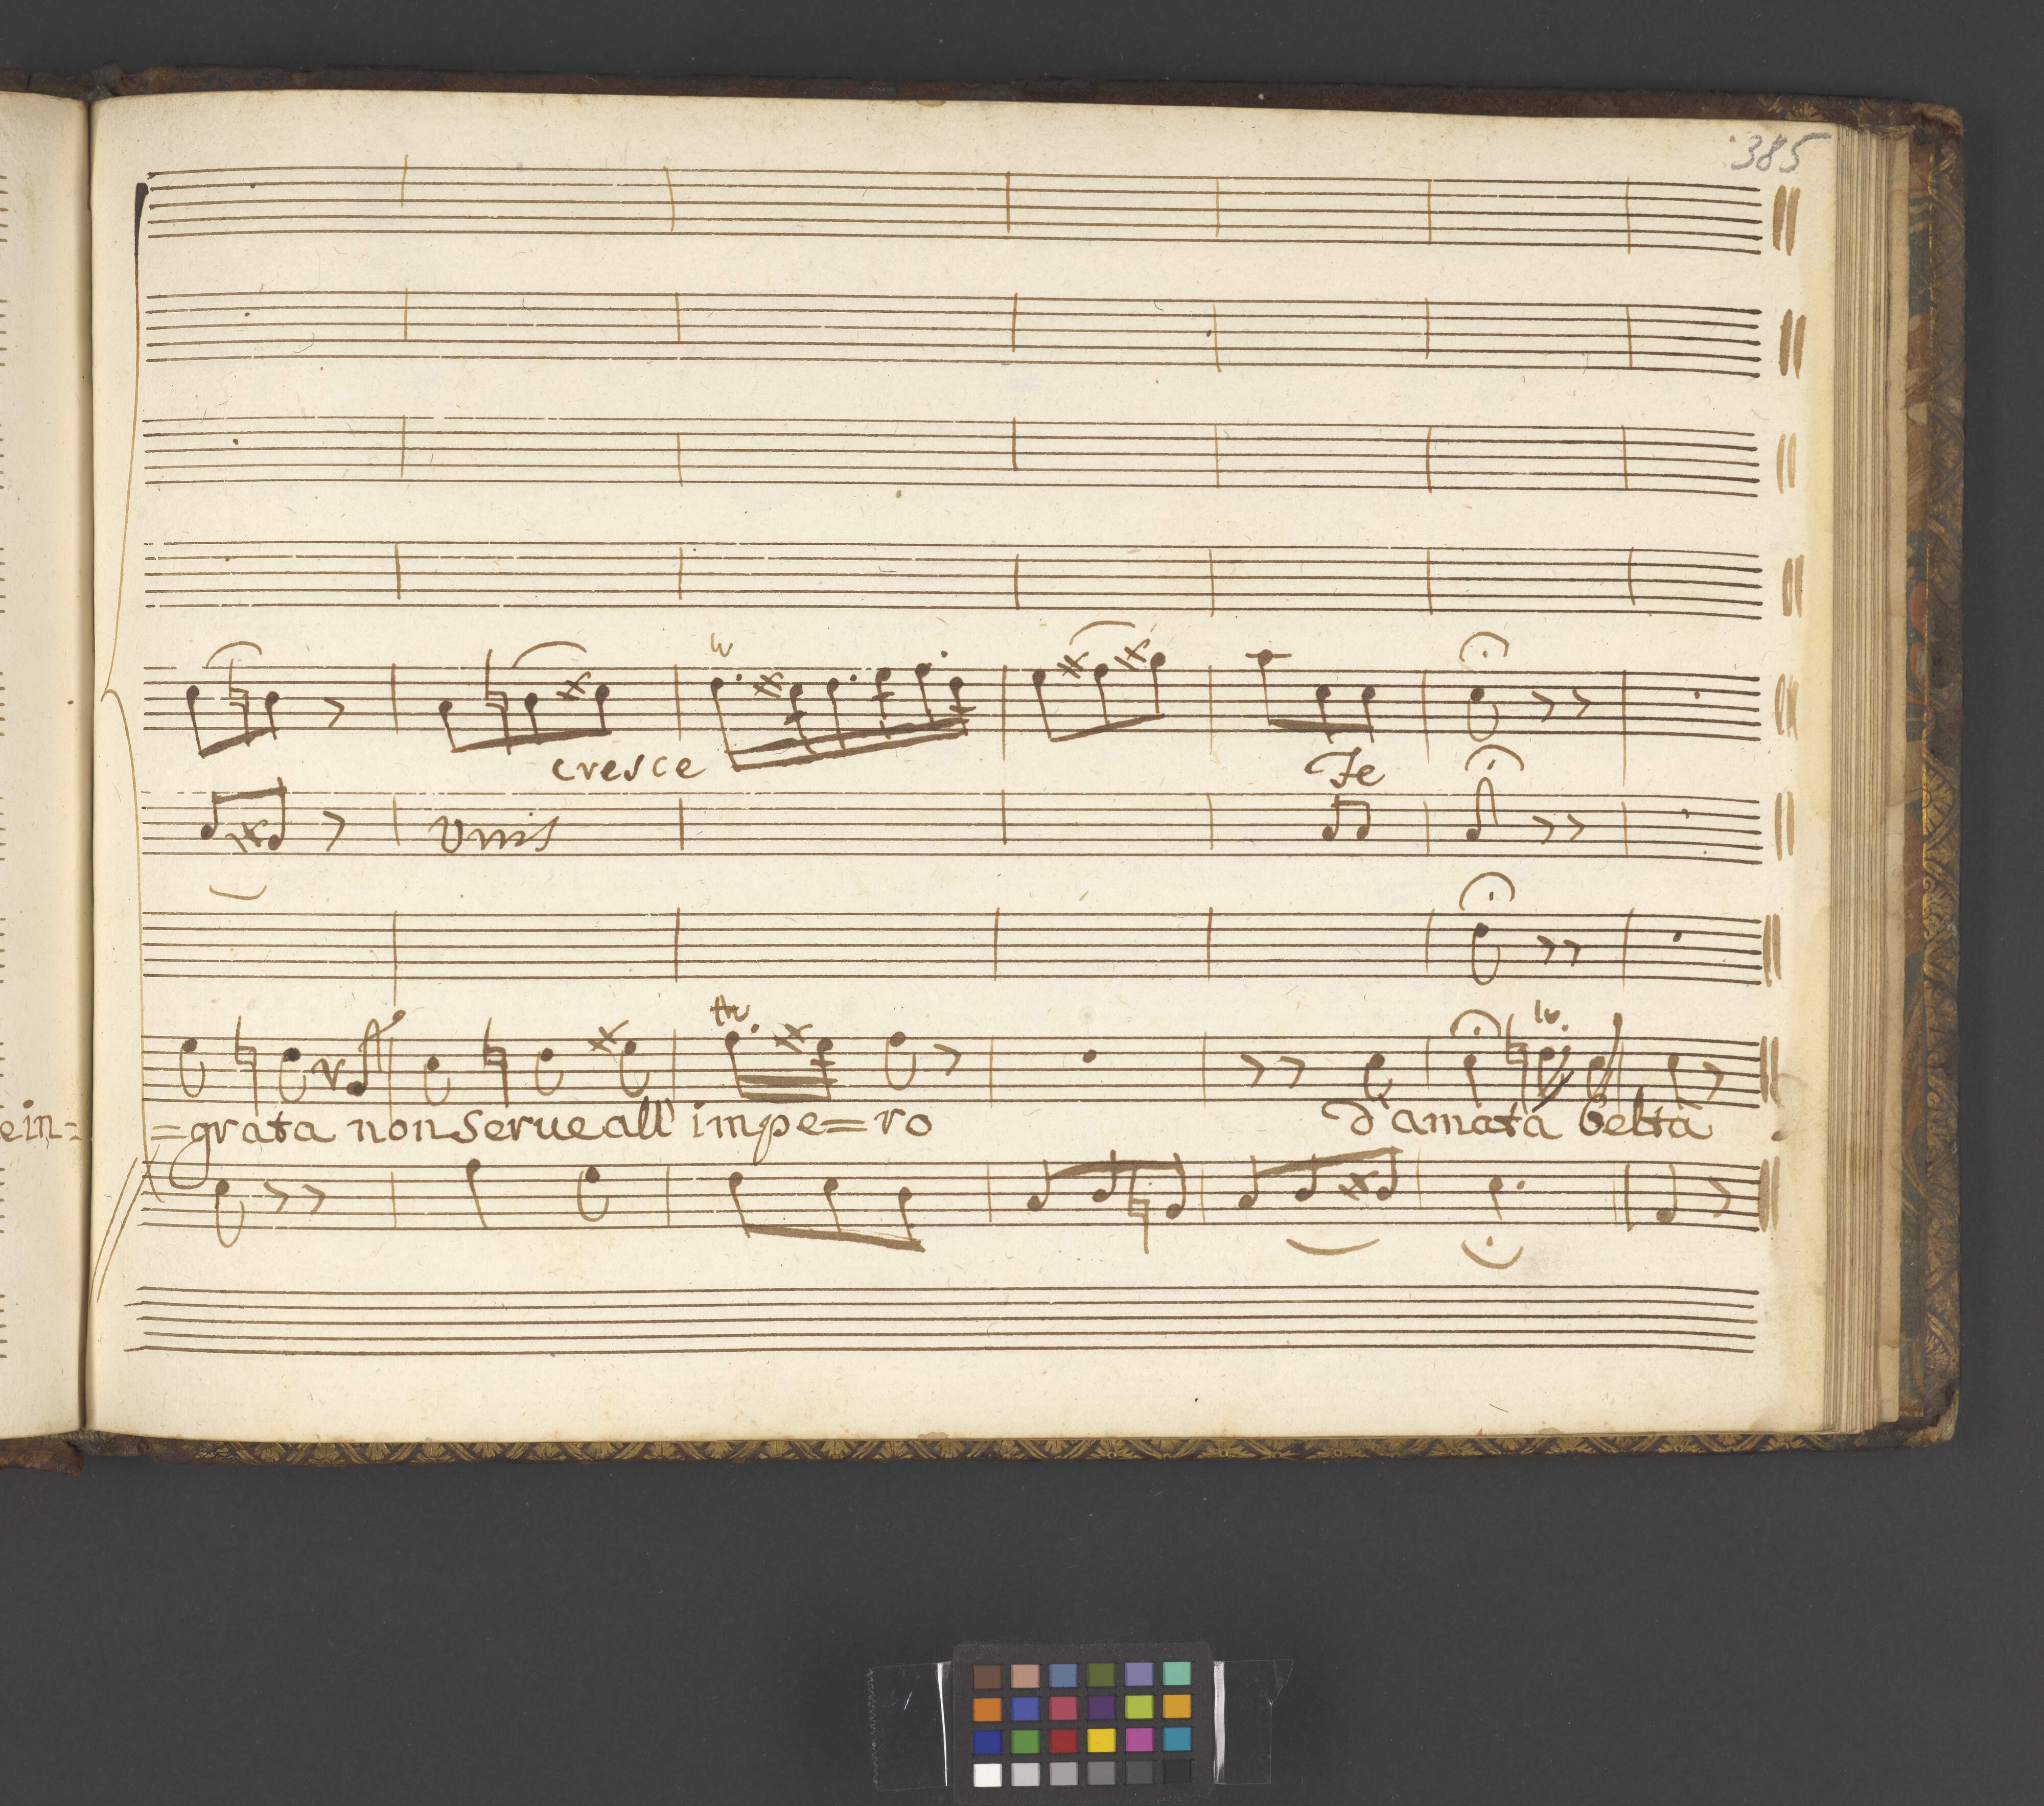 385
cresce
Fe
Unis
e in= =grata non serue all' impe=ro d'amata beltà